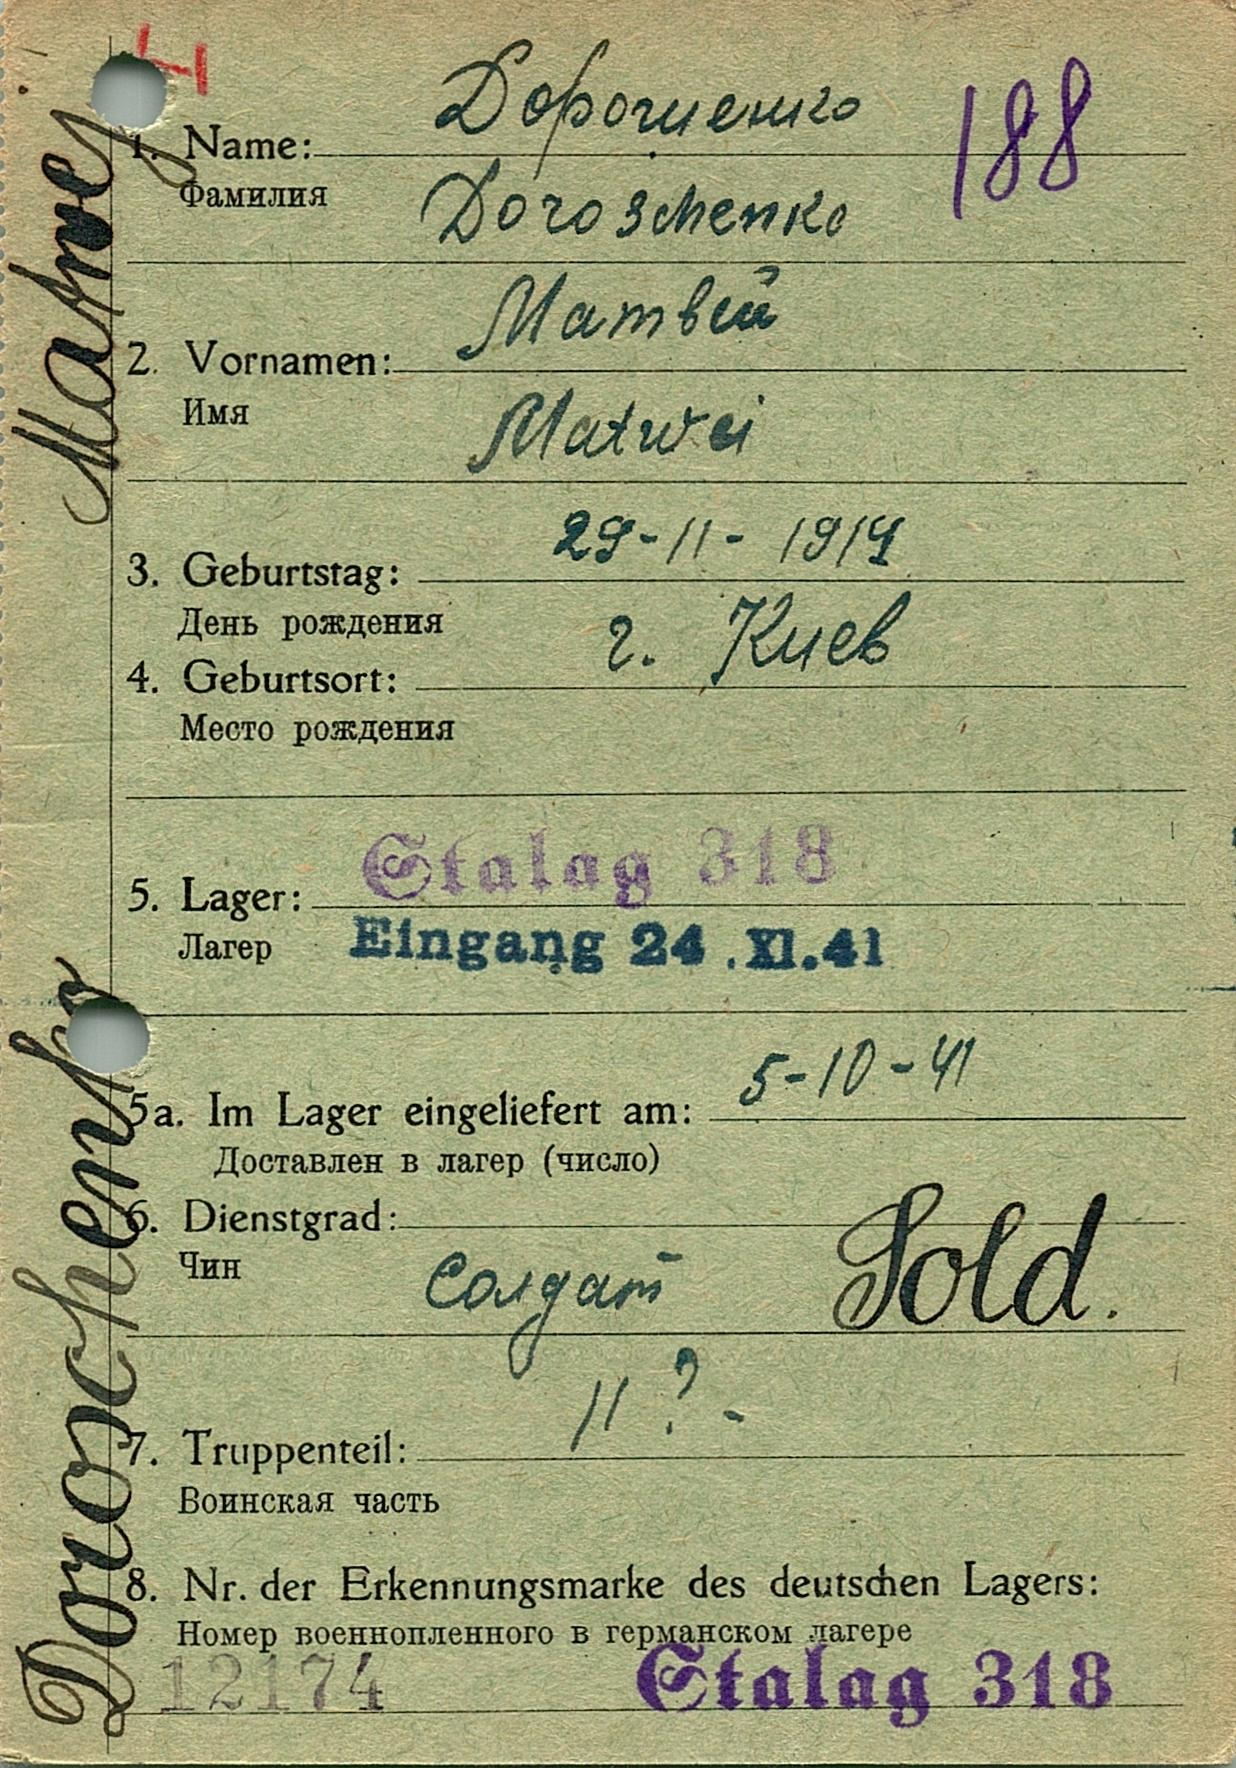 188
1. Name: Дорошенко
Фамилия
Doroschenko
2. Vornamen: Матвей
Имя
Matwei
3. Geburtstag: 29-11-1914
День рождения
4. Geburtsort: г. Киев
Место рождения
5. Lager: Stalag 318
Лагер Eingang 24.XI.41
5a. Im Lager eingeliefert am: 5-10-41
Доставлен в лагер (число)
6. Dienstgrad:
Чин солдат Sold.
7. Truppenteil: 11 ? -
Воинская часть
8. Nr. der Erkennungsmarke des deutschen Lagers:
Номер военнопленного в германском лагере
12174 Stalag 318
Doroschenko Matwej